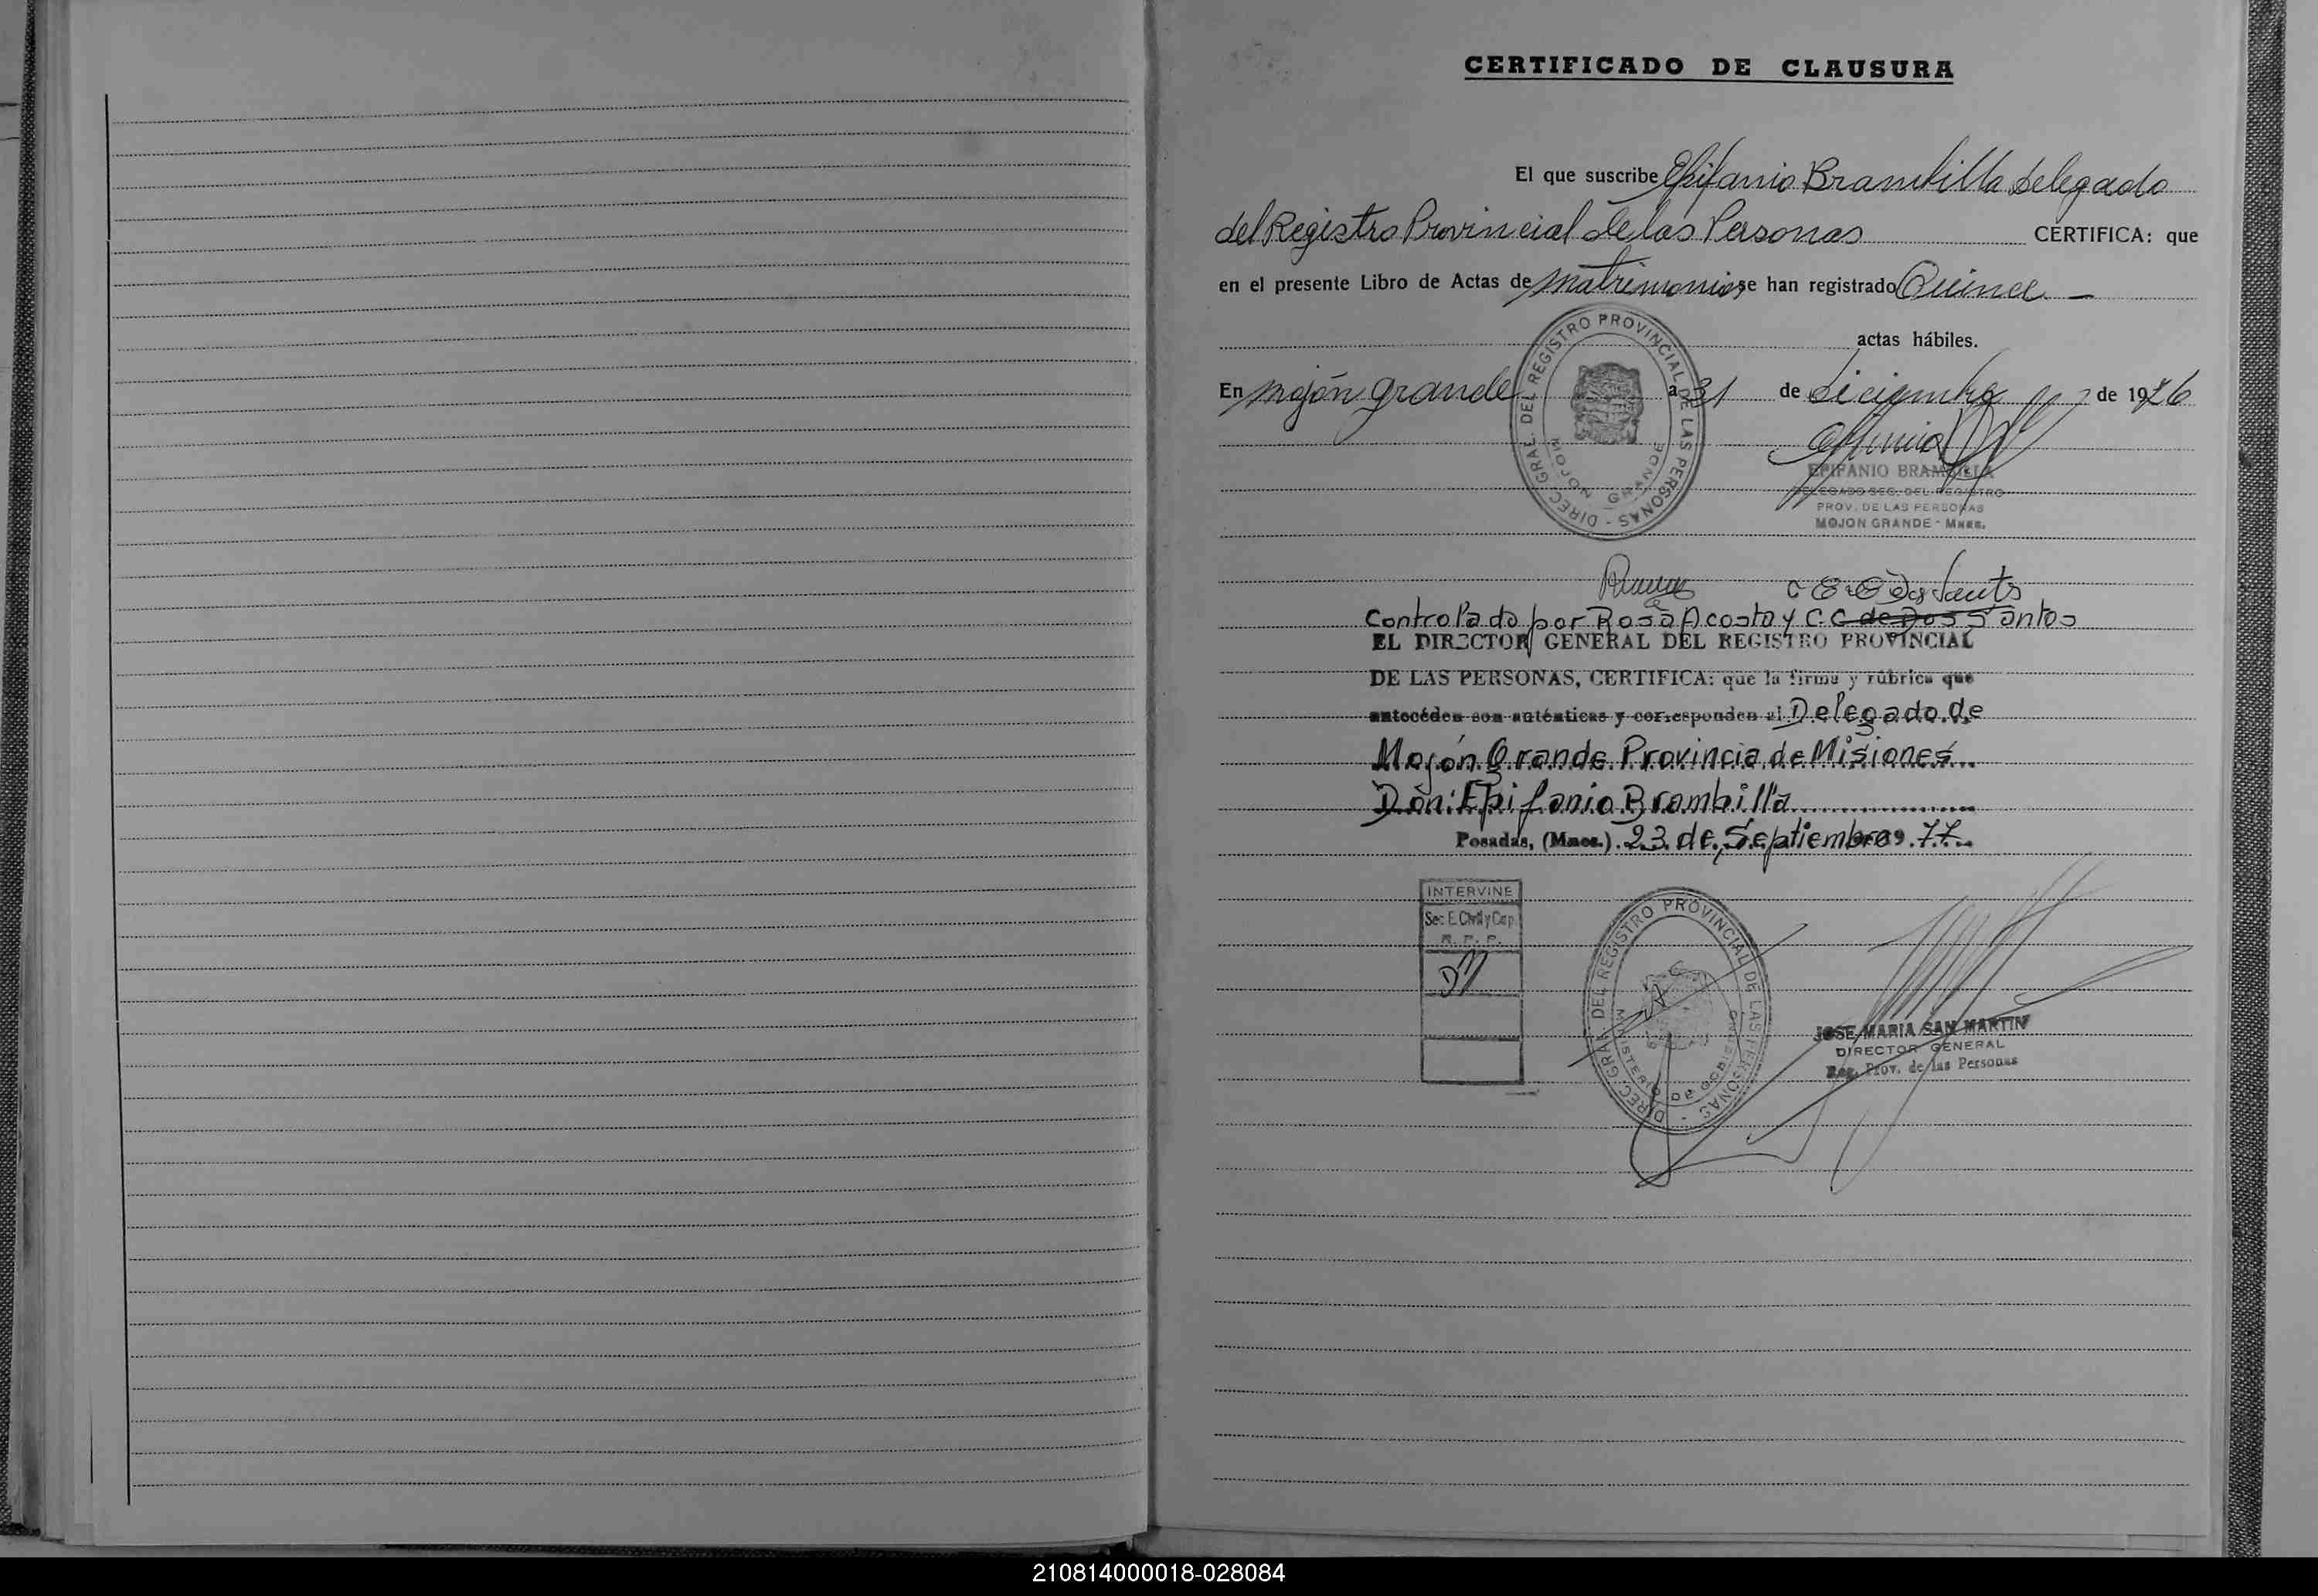 CERTIFICADO DE CLAUSURA
El que suscribe Epifanio Brambilla Delegado
del Registro Provincial de las Personas CERTIFICA: que
en el presente Libro de Actas de matrimonios se han registrado Quince —
actas hábiles.
En mojón grande a 31 de diciembre de 1976
DIREC. GRAL. DEL REGISTRO PROVINCIAL DE LAS PERSONAS -
MOJON GRANDE
EPIFANIO BRAMBILLA
DELEGADO SEC. DEL REGISTRO
PROV. DE LAS PERSONAS
MOJON GRANDE - Mnes.
Controlado por Rosa Acosta y C.C de Dos Santos
EL DIRECTOR GENERAL DEL REGISTRO PROVINCIAL
DE LAS PERSONAS, CERTIFICA: que la firma y rúbrica que
antecéden son auténticas y corresponden al Delegado de
Mojón Grande Provincia de Misiones
Don: Epifanio Brambilla
Posadas, (Mnes.) 23 de Septiembre 1977
INTERVINE
Sec. E. Civil y Cap.
R. P. P.
DIREC. GRAL. DEL REGISTRO PROVINCIAL DE LAS PERSONAS -
MINISTERIO DE GOBIERNO
JOSE MARIA SAN MARTIN
DIRECTOR GENERAL
Reg. Prov. de las Personas
210814000018-028084